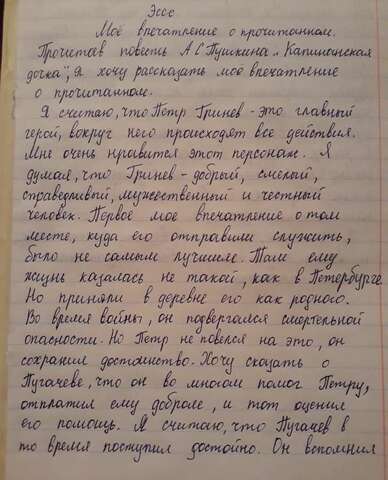 Эссе
Моё впечатление о прочитанном.
Прочитав повесть А С Пушкина „Капитанская
дочка", Я хочу рассказать моё впечатление
о прочитанном.
Я считаю, что Петр Гринев - это главный
герой, вокруг него происходят все действия.
Мне очень нравится этот персонаж. Я
думаю, что Гринев - добрый, смелый,
справедливый, мужественный и честный
человек. Первое мое впечатление о том
месте, куда его отправили служить,
было не самым лучшим. Там ему
жизнь казалась не такой, как в Петербурге.
Но приняли в деревне его как родного.
Во время войны, он подвергался смертельной
опасности. Но Петр не повелся на это, он
сохранил достоинство. Хочу сказать о
Пугачеве, что он во многом помог Петру,
отплатил ему добром, и тот оценил
его помощь. Я считаю, что Пугачев в
то время поступил достойно. Он вспомнил